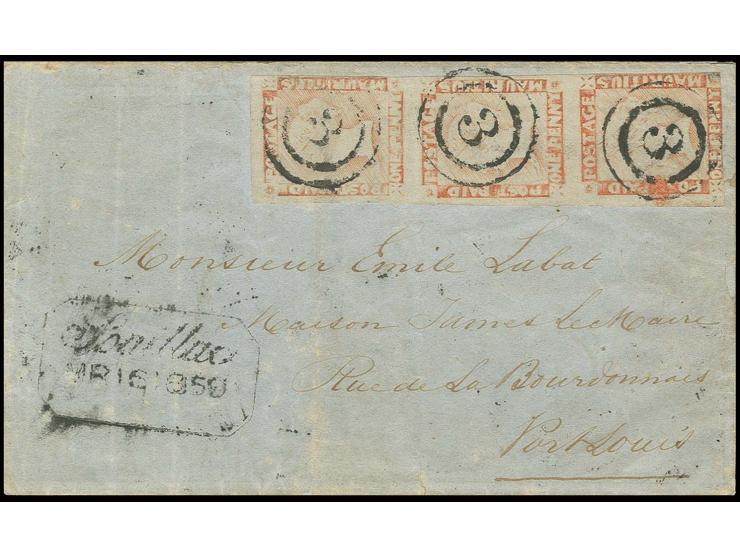 POSTAGE MAURITIUS ONE PENNY POST PAID
POSTAGE MAURITIUS ONE PENNY POST PAID
POSTAGE MAURITIUS
3 3 3
Monsieur Emile Labat
Maison James LeMaire
Rue de La Bourdonnais
Port Louis
Souillac
MR 16 1859